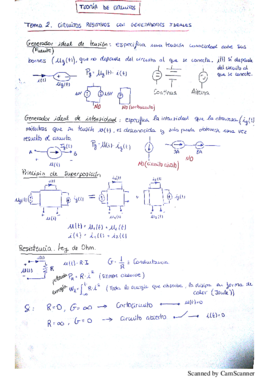 TEORÍA DE CIRCUITOS
TEMA 2. CIRCUITOS RESISTIVOS CON GENERADORES IDEALES
Generador ideal de tensión: especifica una tensión conocida entre sus
(Fuente)
bornes (Mg(t)), que no depende del circuito al que se conecta. i(t) sí depende
del circuito al
que se conecte.
Pg = Mg(t) · i(t)
Continua
Alterna
NO
NO (cortocircuito)
Generador ideal de intensidad: especifica la intensidad que lo atraviesa (ig(t))
mientras que la tensión M(t), es desconocida y sólo puede obtenerse una vez
resuelto el circuito
A
B
ig(t)
M(t)
Pg = M(t) ig(t)
NO (circuito abierto)
3A
5A
NO
Principio de Superposición
Mg(t)
i(t)
ig(t)
=
+
M(t) = M1(t) + M2(t)
i(t) = i1(t) + i2(t)
Resistencia. Ley de Ohm.
i(t)
M(t)
R
M(t) = R · i
G = 1/R = Conductancia
potencia PR = R · i² (siempre consume)
energía WR = ∫ R · i² (Toda la energía que absorbe, la disipa en forma de
calor (Joule))
Si: R=0, G=∞ → Cortocircuito M(t)=0
R=∞, G=0 → Circuito abierto i(t)=0
Scanned by CamScanner